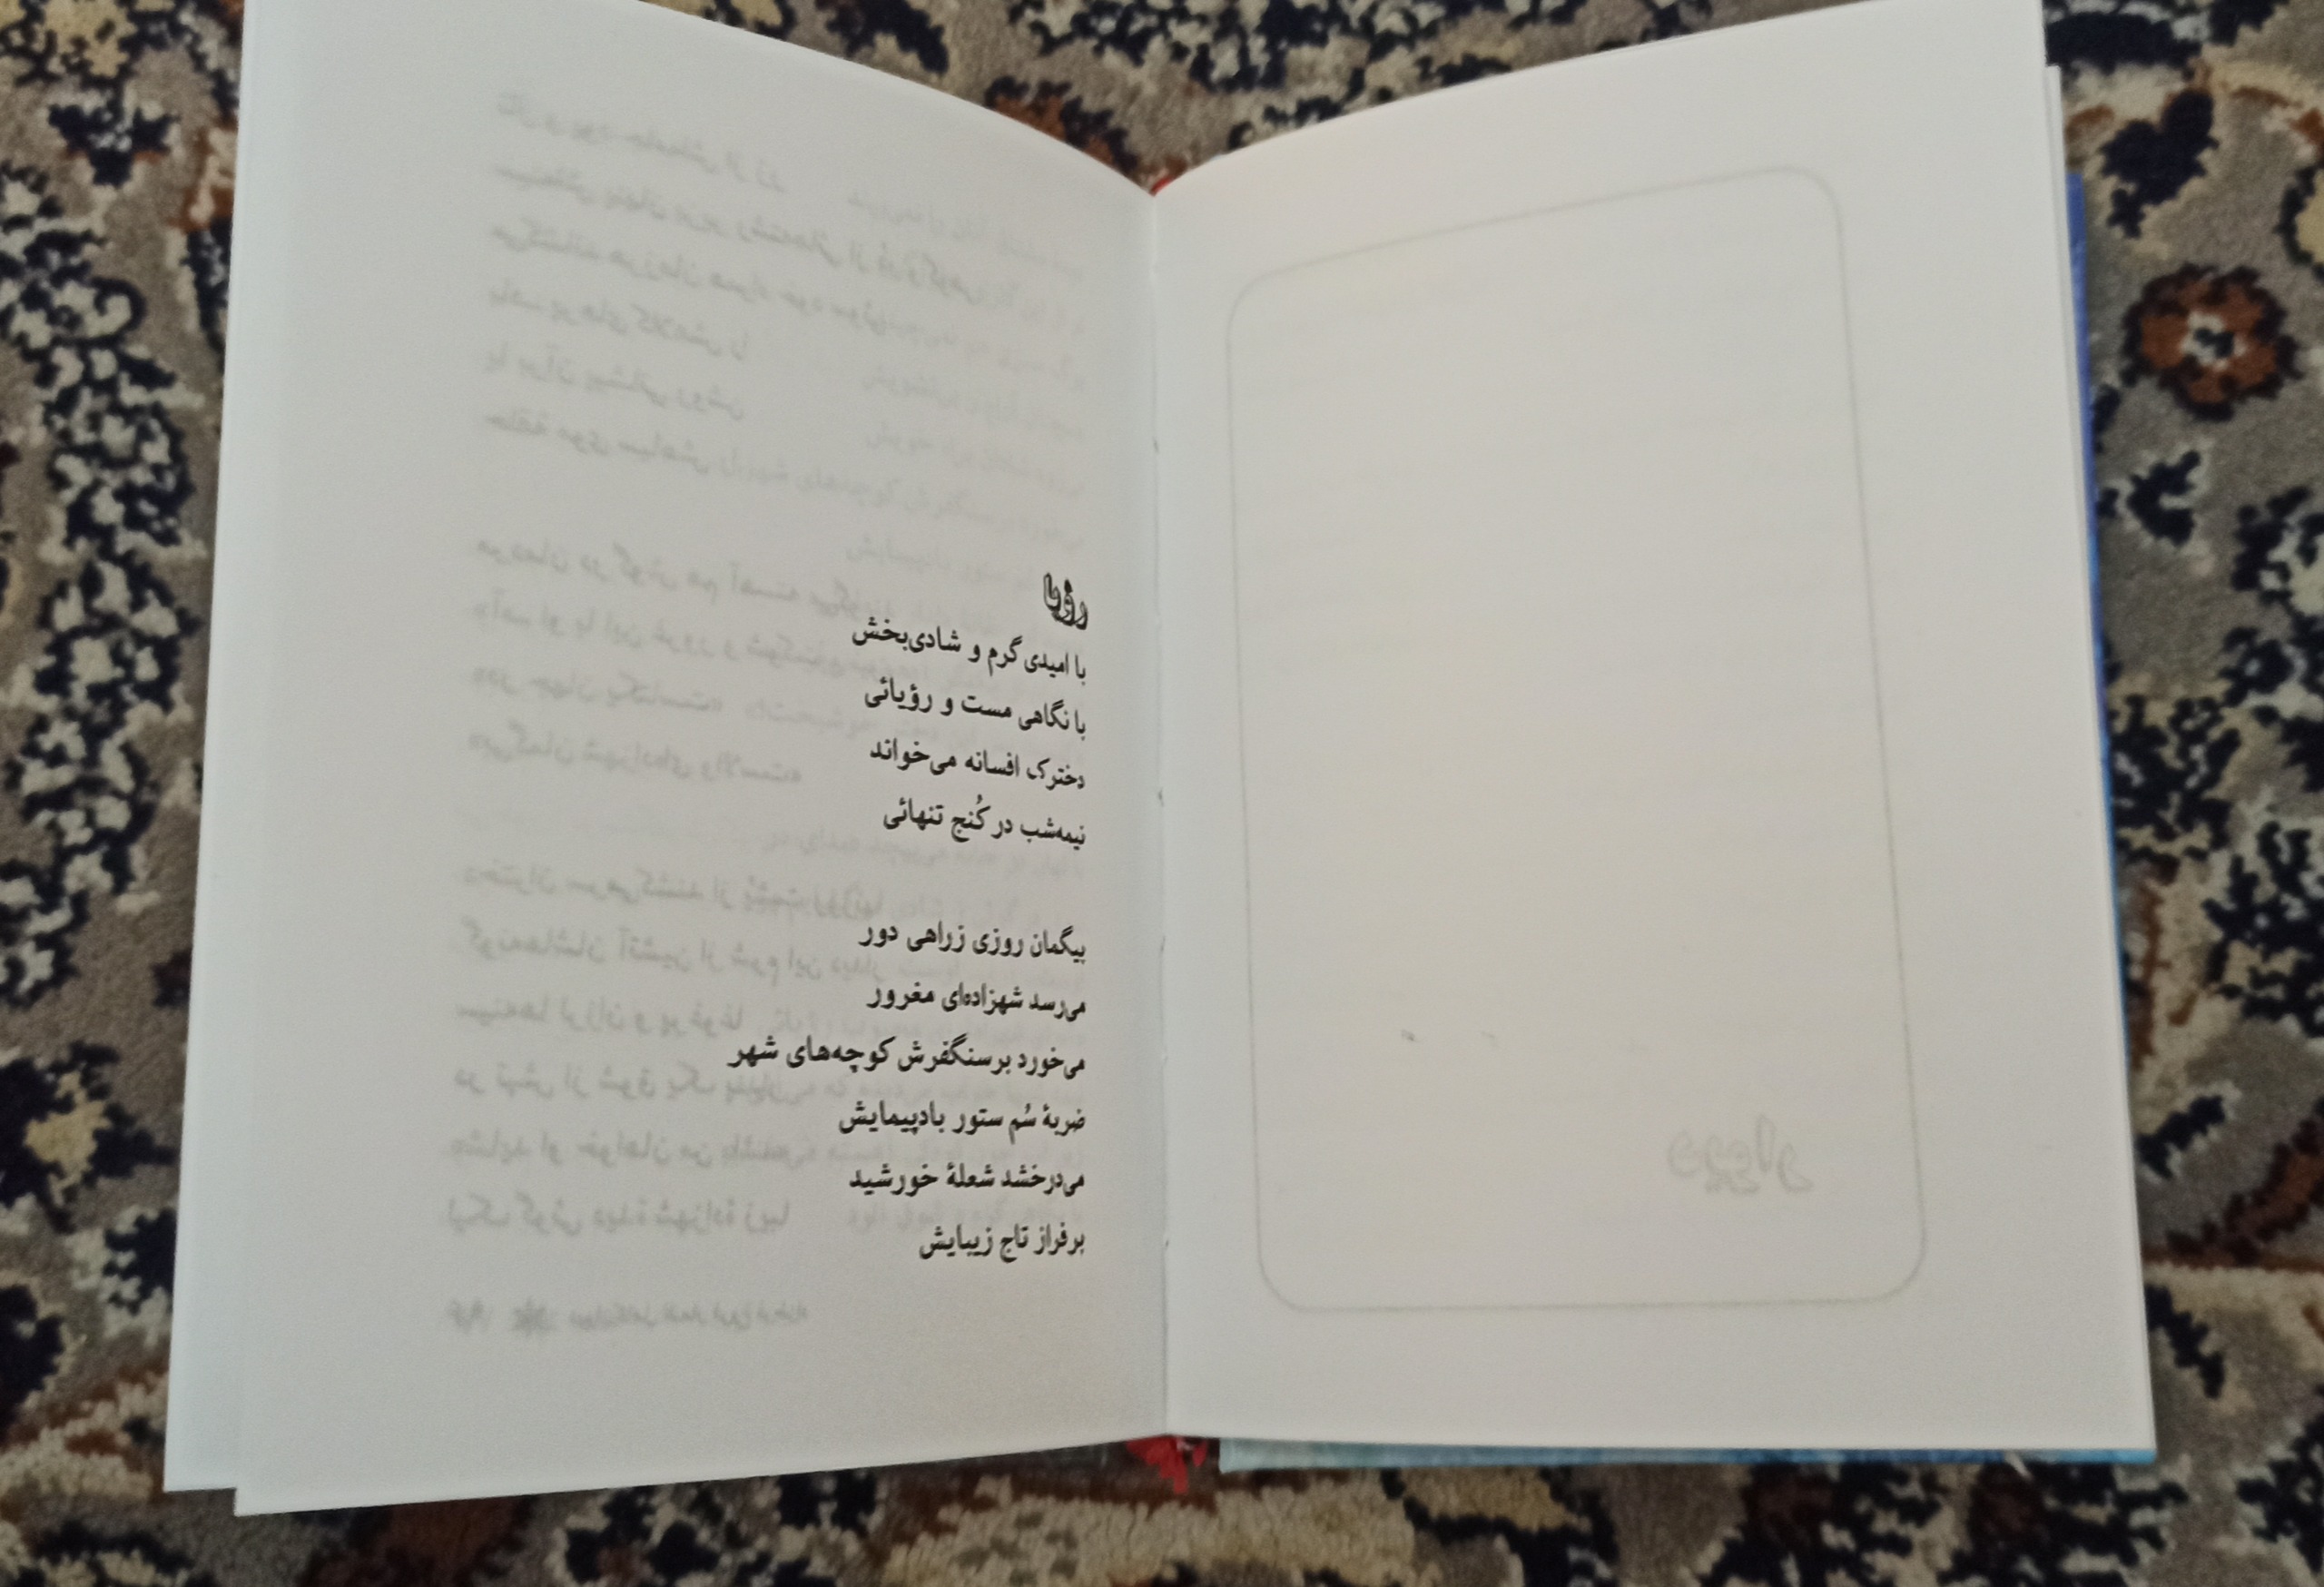 رؤیا
با امیدی گرم و شادی‌بخش
با نگاهی مست و رؤیائی
دخترک افسانه می‌خواند
نیمه‌شب در کُنج تنهائی
بیگمان روزی زراهی دور
می‌رسد شهزاده‌ای مغرور
می‌خورد برسنگفرش کوچه‌های شهر
ضربهٔ سُم ستور بادپیمایش
می‌درخشد شعلهٔ خورشید
برفراز تاج زیبایش